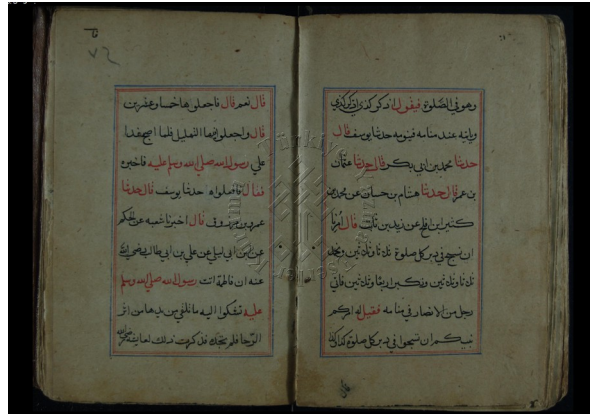 وهو في الصلوة فيقول اذكر كذى اذكر كذى
وياتيه عند منامه فينومه حدثنا يوسف قال
حدثنا محمد بن ابي بكر قال حدثنا عثمان
بن عمر قال حدثنا هشام بن حسان عن محمد عن
كثير بن افلح عن زيد بن ثابت قال امرنا
ان نسبح في دبر كل صلوة ثلاثا وثلاثين ونحمد
ثلاثا وثلاثين ونكبر اربعا وثلاثين فاتى
رجل من الانصار في منامه فقيل له امركم
نبيكم ان تسبحوا في دبر كل صلوة كذا كذا
قال
قال نعم قال فاجعلوها خمسا وعشرين
قال واجعلوا فيها التهليل فلما اصبح غدا
على رسول الله صلى الله وسلم عليه فاخبره
فقال فافعلوا حدثنا يوسف قال حدثنا
عمرو بن مرزوق قال اخبرنا شعبه عن الحكم
عن ابن ابي ليلى عن علي بن ابي طالب رضي الله
عنه ان فاطمة اتت رسول الله صلى الله وسلم
عليه تشكوا اليه ما تلقى من يدها من اثر
الرحا فلم تجده فذكرت ذلك لعايشة رضى الله